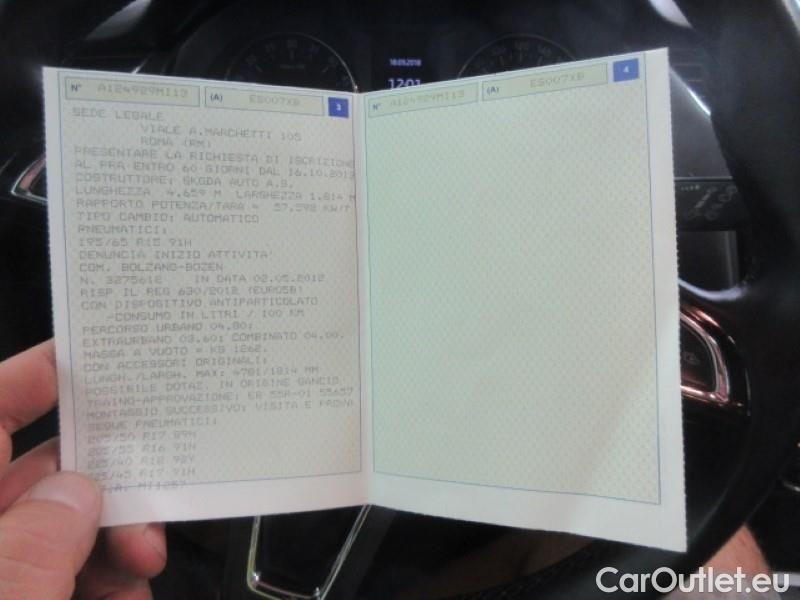 18.09.2018
1201
N° A124929MI13 (A) ES007XB 3
SEDE LEGALE
VIALE A.MARCHETTI 105
ROMA (RM)
PRESENTARE LA RICHIESTA DI ISCRIZIONE
AL PRA ENTRO 60 GIORNI DAL 16.10.2013
COSTRUTTORE: SKODA AUTO A.S.
LUNGHEZZA 4.659 M LARGHEZZA 1.814 M
RAPPORTO POTENZA/TARA = 57.592 KW/T
TIPO CAMBIO: AUTOMATICO
PNEUMATICI:
195/65 R15 91H
DENUNCIA INIZIO ATTIVITA'
COM. BOLZANO-BOZEN
N. 3275612 IN DATA 02.05.2012
RISP IL REG 630/2012 (EURO5B)
CON DISPOSITIVO ANTIPARTICOLATO
-CONSUMO IN LITRI / 100 KM
PERCORSO URBANO 04.80;
EXTRAURBANO 03.60; COMBINATO 04.00.
MASSA A VUOTO = KG 1262.
CON ACCESSORI ORIGINALI:
LUNGH./LARGH. MAX: 4781/1814 MM
POSSIBILE DOTAZ. IN ORIGINE GANCIO
TRAINO-APPROVAZIONE: E8 55R-01 55657
MONTAGGIO SUCCESSIVO: VISITA E PROVA
SEGUE PNEUMATICI:
205/50 R17 89H
205/55 R16 91H
225/40 R18 92Y
225/45 R17 91H
MI1257
N° A124929MI13 (A) ES007XB 4
CarOutlet.eu